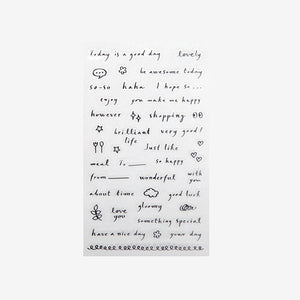 today is a good day lovely
be awesome today
so-so haha I hope so...
enjoy you make me happy
however shopping
brilliant very good!
life
Just like
meal to ____ so happy
from ____ wonderful with
you
about time good luck
gloomy
love
you
something special
have a nice day your day